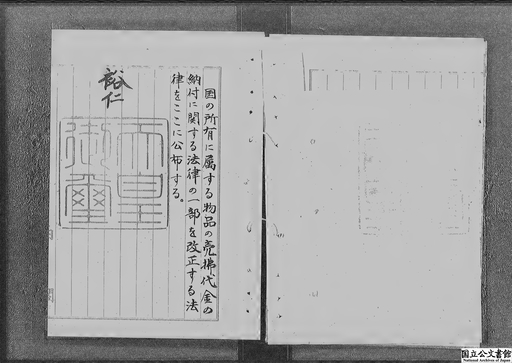 国の所有に属する物品の売払代金の
納付に関する法律の一部を改正する法
律をここに公布する。
裕仁
天皇
御璽
国立公文書館
National Archives of Japan